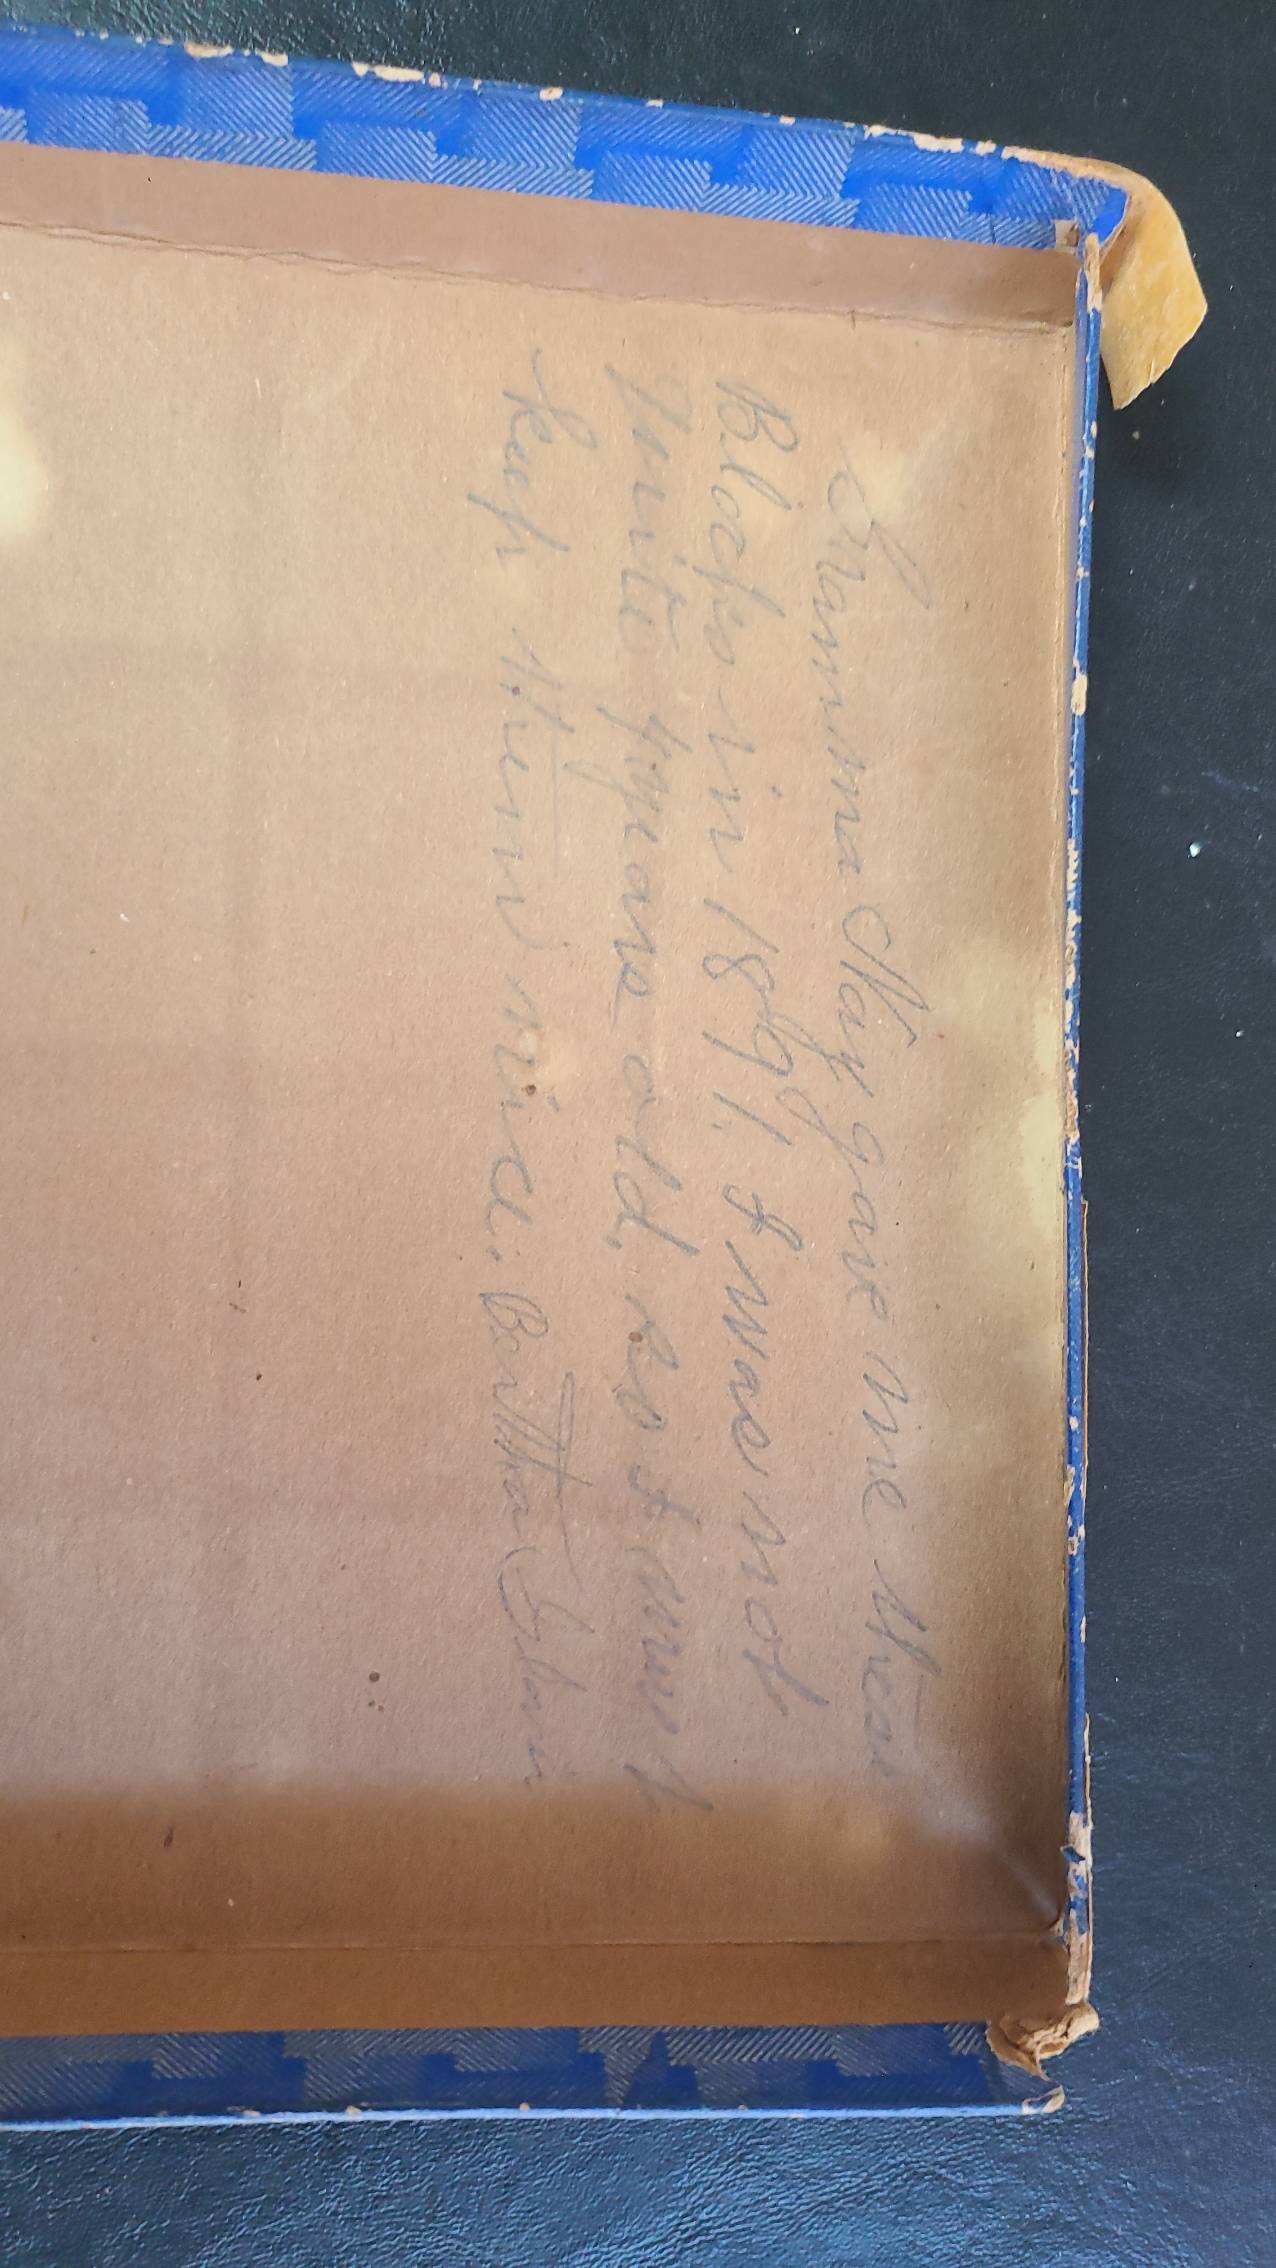 Gramma Nay gave me these
Blocks in 1891. I was not
quite 4 years old. so I must
keep them nice. Bertha